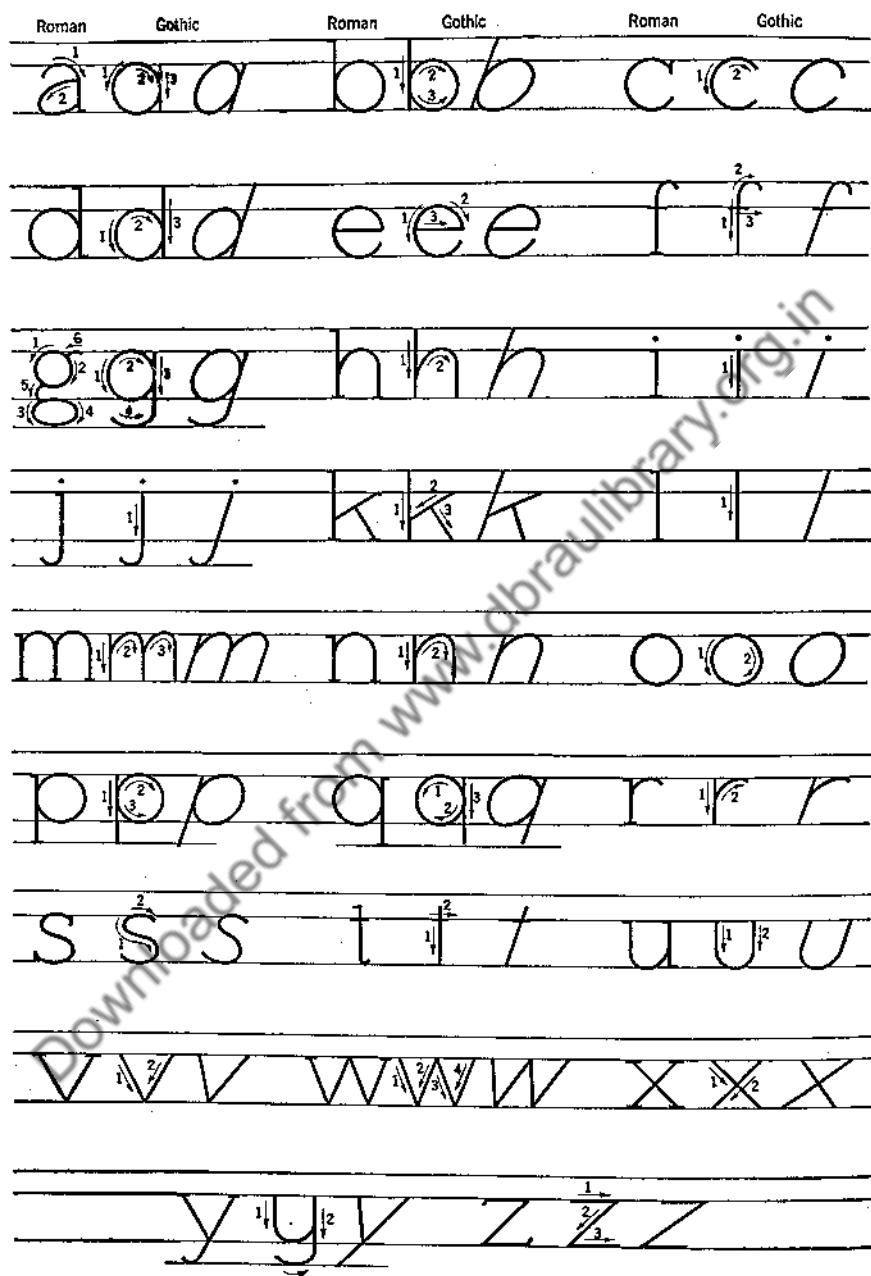 Roman Gothic Roman Gothic Roman Gothic
a a a b b b c c c
d d d e e e f f f
g g g h h h i i i
j j j k k k l l l
m m m n n n o o o
p p p q q q r r r
s s s t t t u u u
v v v w w w x x x
y y y z z z
Downloaded from www.dbraulibrary.org.in